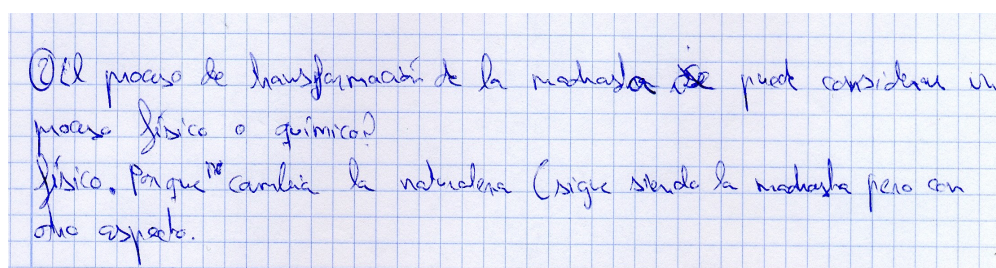 ② El proceso de transformación de la madrastra se puede considerar un
proceso físico o químico?
físico. Porque no cambia la naturaleza (sigue siendo la madrastra pero con
otro aspecto.